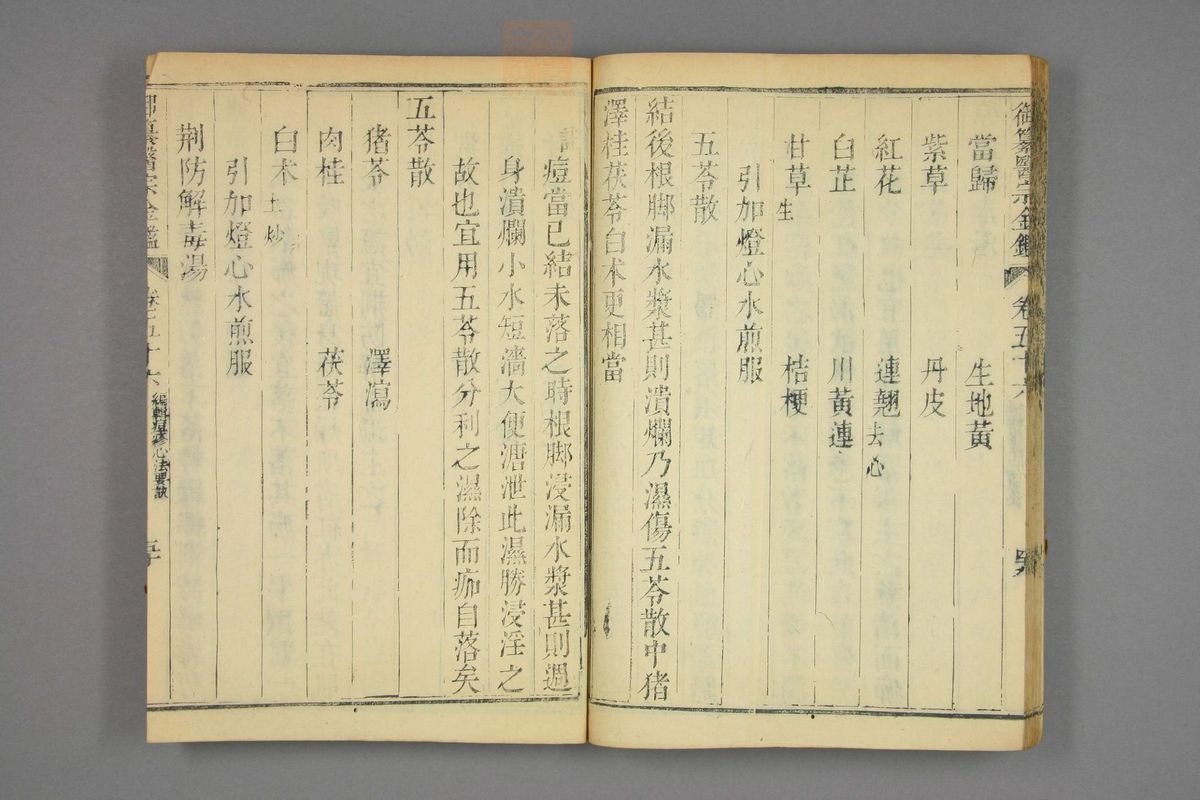 御纂醫宗金鑑 卷五十六
當歸 生地黃
紫草 丹皮
紅花 連翹去心
白芷 川黃連
甘草生 桔梗
引加燈心水煎服
五苓散
結後根脚漏水漿甚則潰爛乃濕傷五苓散中猪
澤桂茯苓白术更相當
痘當已結未落之時根脚浸漏水漿甚則週
身潰爛小水短濇大便溏泄此濕勝浸淫之
故也宜用五苓散分利之濕除而痂自落矣
五苓散
猪苓 澤瀉
肉桂 茯苓
白术土炒
引加燈心水煎服
荆防解毒湯
御纂醫宗金鑑 卷五十六 編輯痘疹心法要訣